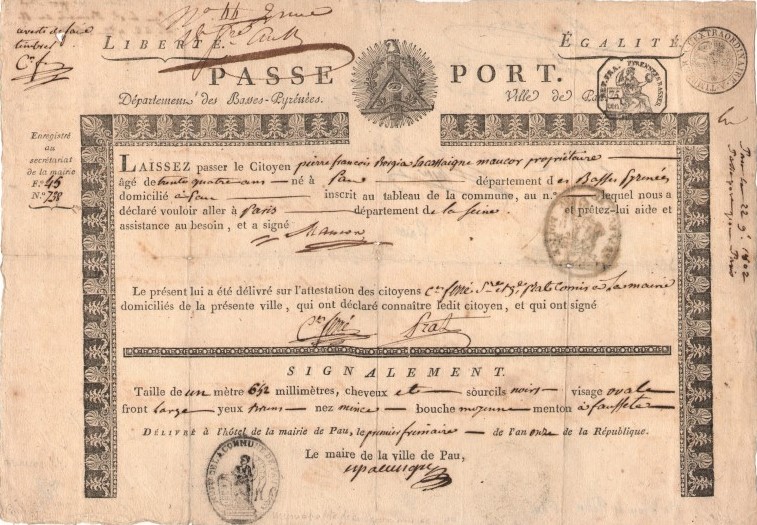 LIBERTÉ. ÉGALITÉ.
PASSE PORT.
Département des Basses-Pyrénées. Ville de Pau
Enregistré
au
secrétariat
de la mairie
F.° 45
N.° 738
LAISSEZ passer le Citoyen pierre françois Borgia Lacassaigne maucor propriétaire
âgé de trente quatre ans né à Pau département des Basses Pyrenées
domicilié à Pau inscrit au tableau de la commune, au n.° lequel nous a
déclaré vouloir aller à Paris département de la Seine et prêtez-lui aide et
assistance au besoin, et a signé
Maucor
Le présent lui a été délivré sur l'attestation des citoyens
domiciliés de la présente ville, qui ont déclaré connaître ledit citoyen, et qui ont signé
Prat
SIGNALEMENT.
Taille de un mètre 652 millimètres, cheveux et sourcils noirs visage ovale
front large yeux nez mince bouche moyenne menton à fossete
DÉLIVRÉ à l'hôtel de la mairie de Pau, le premier frimaire de l'an onze de la République.
Le maire de la ville de Pau,
22 9.e 1802